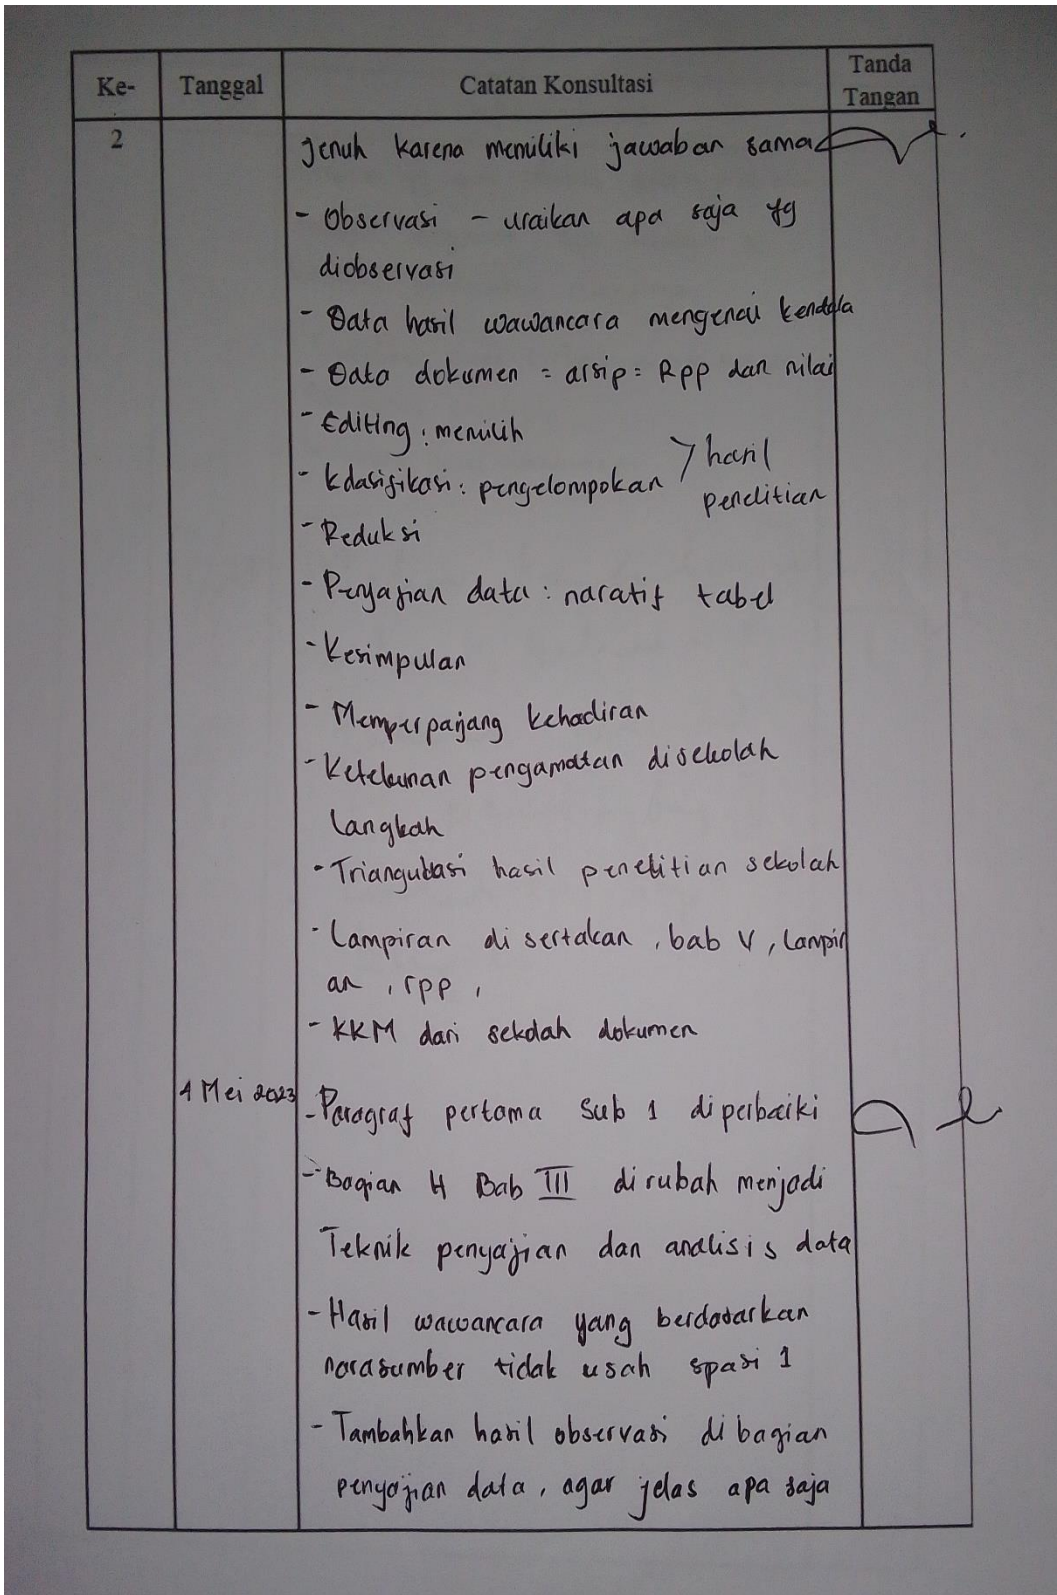 Ke-
Tanggal
Catatan Konsultasi
Tanda
Tangan
2
Jenuh karena memiliki jawaban sama
- Observasi - uraikan apa saja yg
diobservasi
- Data hasil wawancara mengenai kendala
- Data dokumen = arsip = Rpp dan nilai
- Editing : memilih
- Kdasifikasi : pengelompokan > hasil
penelitian
- Reduksi
- Penyajian data : naratif tabel
- Kesimpulan
- Memperpanjang kehadiran
- Ketekunan pengamatan disekolah
langkah
- Triangulasi hasil penelitian sekolah
- Lampiran di sertakan , bab V , lampir
an , rpp ,
- KKM dari sekolah dokumen
4 Mei 2023
- Paragraf pertama Sub 1 diperbaiki
- Bagian H Bab III dirubah menjadi
Teknik penyajian dan analisis data
- Hasil wawancara yang berdasarkan
narasumber tidak usah spasi 1
- Tambahkan hasil observasi di bagian
penyajian data , agar jelas apa saja